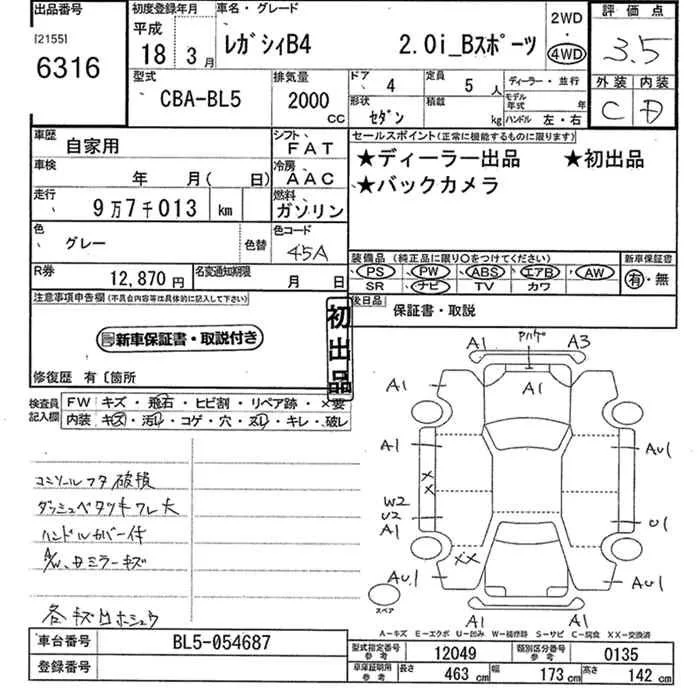 出品番号 初度登録年月 車名・グレード 2WD 評価点
[2155] 平成 レガシィB4 2.0i_Bスポーツ ・ 3.5
6316 18年 3月 4WD
型式 排気量 ドア 4 定員 5 人 ディーラー・並行 外装 内装
CBA-BL5 2000 CC 形状 セダン 積載 kg モデル年式 年 C D
ハンドル 左・右
車歴 自家用 シフト FAT セールスポイント(正常に機能するものに限ります)
車検 年 月( 日) 冷房 AAC ★ディーラー出品 ★初出品
走行 9万7千013 km 燃料 ガソリン ★バックカメラ
色 グレー 色替 色コード 45A
装備品(純正品に限り○をつけてください) 新車保証書
R券 12,870円 名変通知期限 月 日 PS PW ABS エアB AW 有・無
SR ナビ TV カワ
注意事項申告欄(不具合内容等は具体的に記入して下さい) 後日品 保証書・取説
初出品
新車保証書・取説付き
修復歴 有〔箇所
検査員記入欄 FW キズ・飛石・ヒビ割・リペア跡・×要
内装 キズ・汚レ・コゲ・穴・スレ・キレ・破レ
コンソールフタ破損
ダッシュベタツキワレ大
ハンドルカバー付
A/W、Bミラーキズ
各キズ凹ホシュウ
A1 アハゲ A3
A1 A1
A1 AU1
XX
W2
U2 U1
A1
XX
AU1 AU1
スペア A1 A1
A-キズ E-エクボ U-凹み W-補修跡 S-サビ C-腐食 XX-交換済
車台番号 BL5-054687 型式指定番号 参考 12049 類別区分番号 参考 0135
登録番号 車庫証明用 参考 長さ 463 cm 幅 173 cm 高さ 142 cm